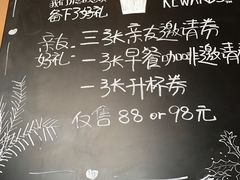 我们为您
REWARDS
备下了好礼
亲友
好礼:
三张亲友邀请券
一张早餐咖啡邀请券
一张升杯券
仅售 88 or 98元